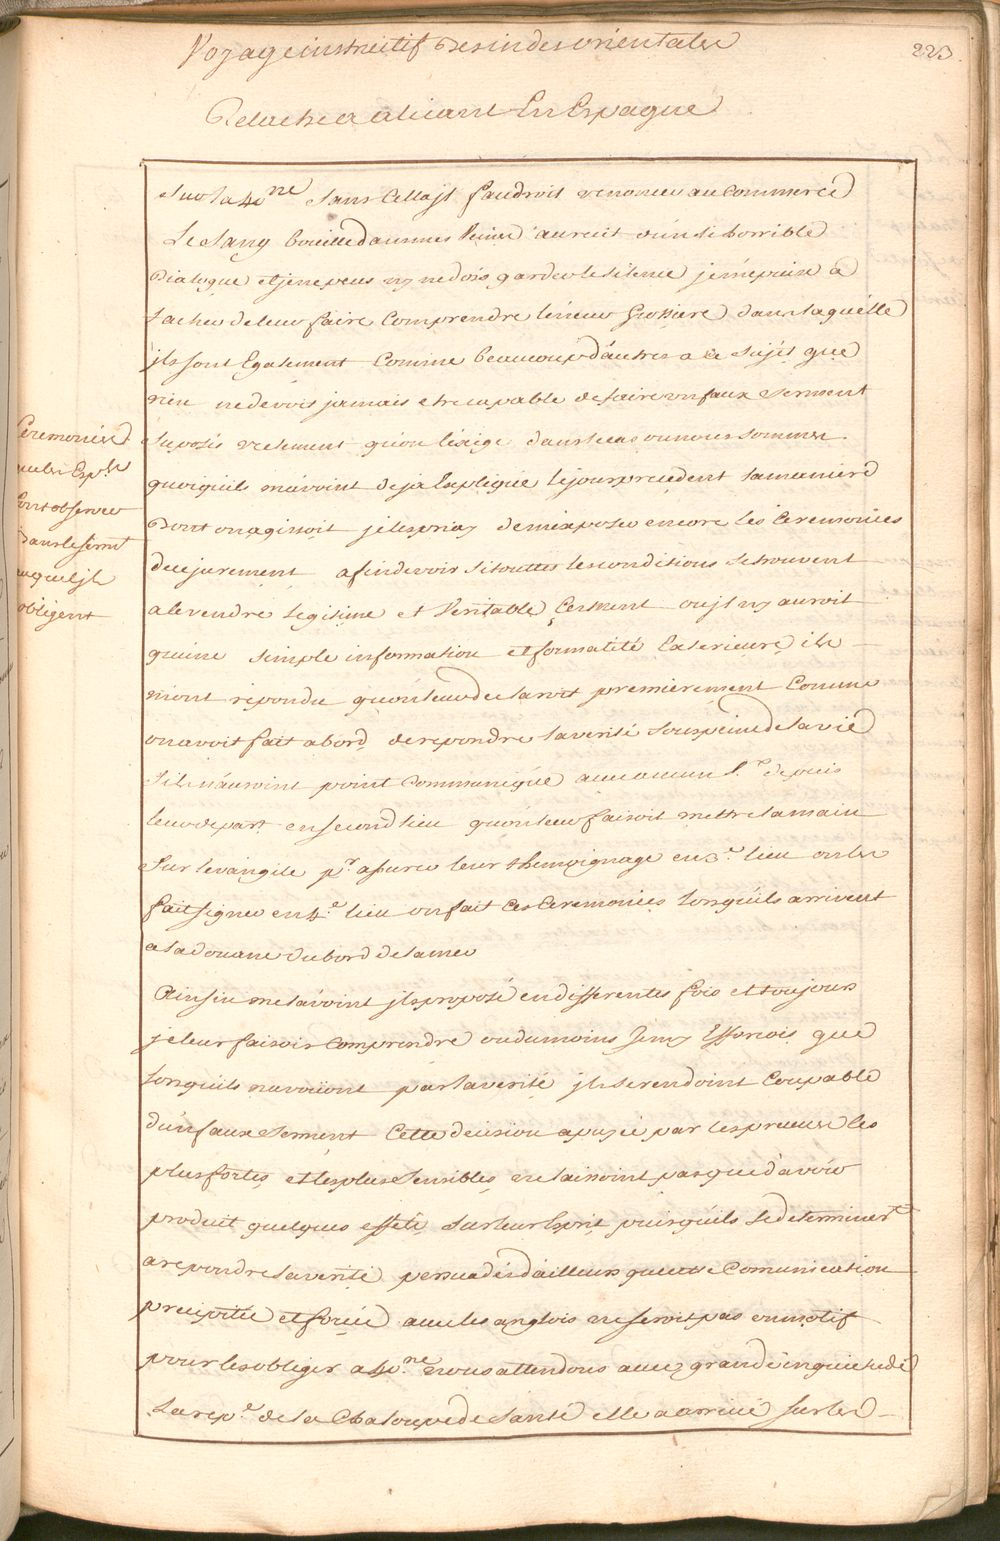 Voyage instructif Des indes orientales
223
Relache a alicant En Espagne
Sur la 40.ne sans Cella jl faudroit renoncer au Commerce
Le Sang bouille dans mes Veines auroit d'un si horrible
Dialogue et je ne peus ny ne dois garder le silence je m'epuise a
tacher de leur faire Comprendre l'erreur Grossiere dans laquélle
jls sont Egalement Comme beaucoup d'autres a ce sujét que
rien ne devois jamais etre capable de faire un faux serment
Suposés vrelement qu'on l'exige dans le cas ou nous sommes.
quoiquils m'avoint deja Expliqué le jour precedent la maniere
Dont on agissoit je les priay de m'exposer encore les Ceremonies
de ce jurement afin de voir si touttes les conditions se trouvent
a le rendre Legitime et Veritable Serment ou jl ny auroit
qu'une simple information et formalité Exterieure ils
m'ont répondu qu'on leur declaroit premierement Comme
on avoit fait abord de repondre la verité sous peine de la vie
S'ils n'auroint point Communiqué avec aucun V.r depuis
leur depart en second lieu qu'on leur faisoit mettre la main
Sur l'evangile p.r assurer leur themoignage en 3.e lieu on les
fait signer en 4.e lieu on fait ces Ceremonies Lorsquils arrivent
a la douane du bord de la mer
Ainsin me l'avoint jls proposé en differentes fois et toujours
je leur faisois Comprendre ou du moins Jemy Efforcois que
Lorsquils n'avoüont par la verité jls se rendoint Coupable
d'un faux Serment Cette decision apuyée par les preuves les
plus fortes et les plus Sensibles ne laissoint pas que d'avoir
produit quelques effets sur leur Esprit puisquils se determiner.t
a repondre la verité persuadés d'ailleurs que cette Comunication
precipitée et forcée avec les anglois ne seroit pas un motif
pour les obliger a 40.ne nous attendons avec grande inquietude
La rep.e de la Chaloupe de Santé elle a arrivé sur les
Ceremonies
que les Esp.ls
font observer
Dans le serm.t
auquel jls
obligent